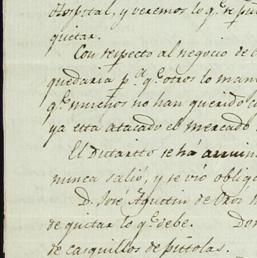 Hospital, y veremos lo q.e se pu
quitar.
Con respecto al negocio de c
quedaria p.a q.e otros lo man
q.e muchos no han querido co
ya está atacado el mercado
El Dictarito se há arruin
nunca salió, y se vió oblig
D. José Agustin de
de quitar lo q.e debe. Don
de casquillos de pistolas.